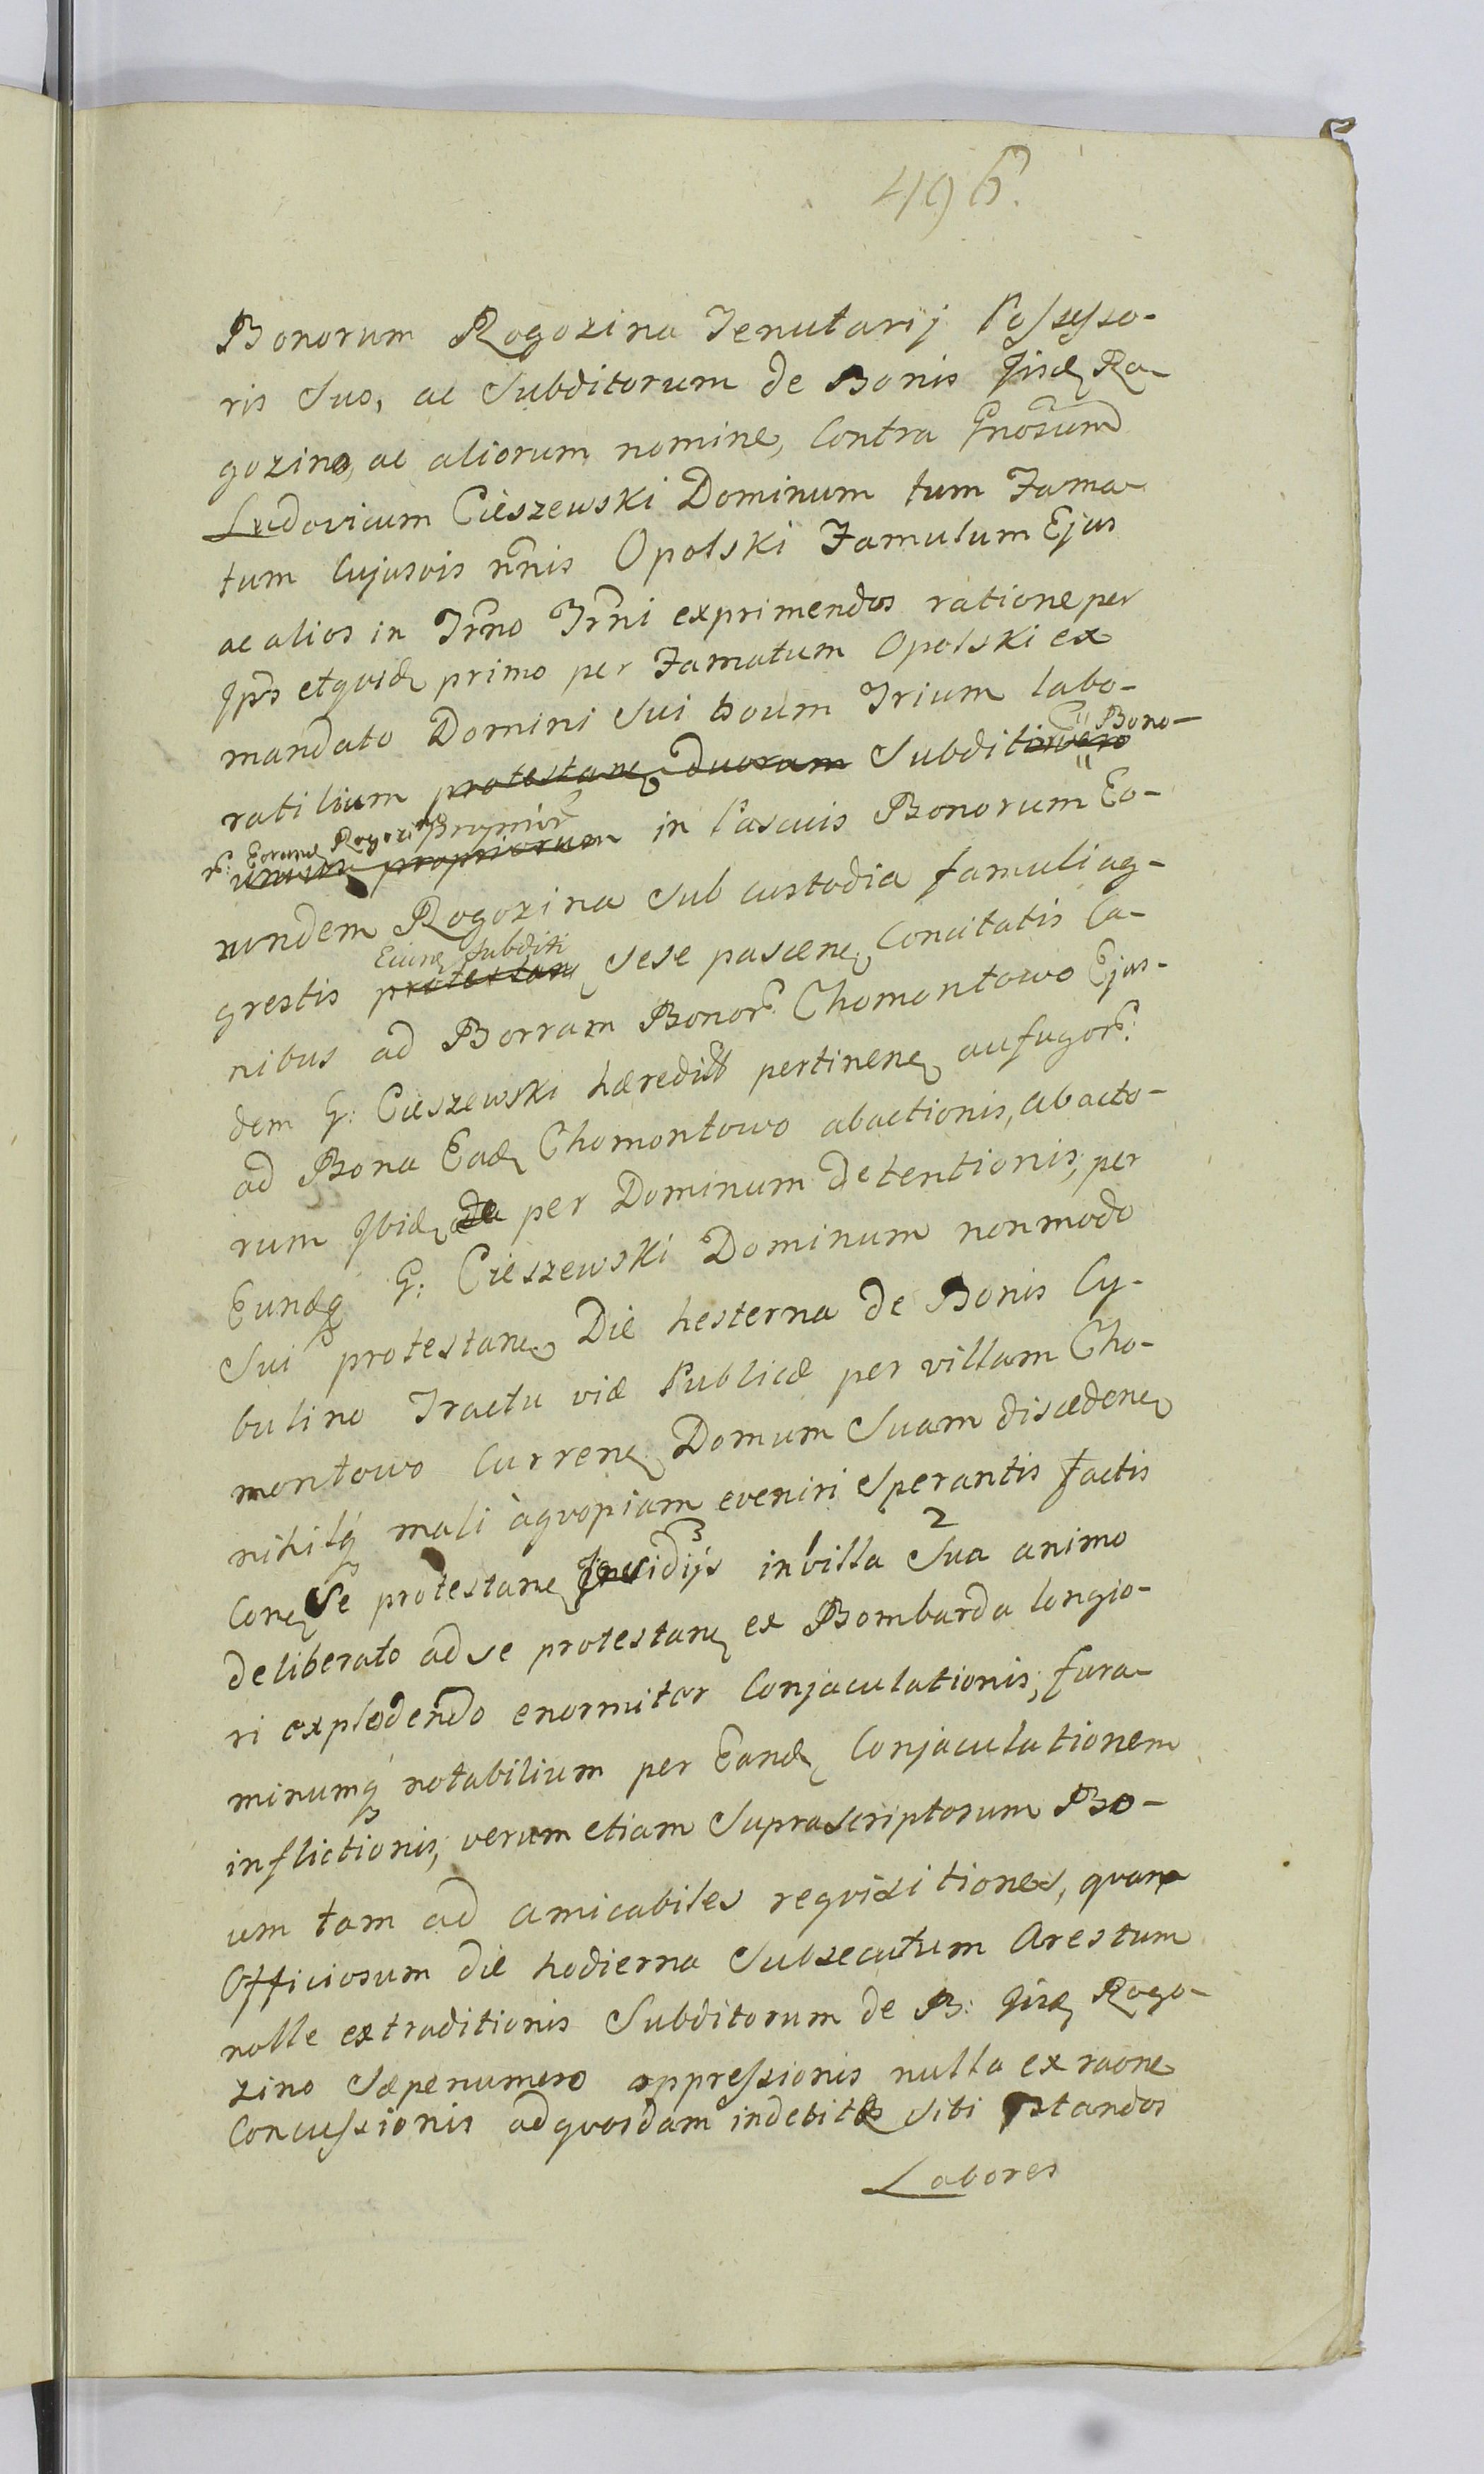 496.
Bonorum Rogozino Tenutarij Possesso-
ris Suo, ac Subditorum de Bonis Jisd Ro-
gozino, ac aliorum nomine, Contra Gnosum
Ludovicum Cieszewski Dominum tum Fama-
tum Cujusvis nnis Opolski Famulum Ejus
ac alios in Trno Trni exprimendos ratione per
Jpos et qvid primo per Famatum Opolski ex
mandato Domini Sui boum Trium labo-
ratilium protestan duorum Subditi Bono-
r: Eorund Rogozino propriorum in Pascuis Bonorum Eo-
rundem Rogozino Sub custodia famuli ag-
Eiusd Subditi
grestis protestan Sese pascen Concitatis Ca-
nibus ad Borram Bonor: Chomontowo Ejus-
dem G: Cieszewski hæredit pertinen aufugor:
ad Bona Ead Chomontowo abactionis, abacto-
rum Ibid de per Dominum detentionis, per
Eundq G: Cieszewski Dominum non modo
Sui protestan Die hesterna de Bonis Cy-
bulino Tractu viæ Publicæ per villam Cho-
montowo Curren Domum Suam discæden
nihilq mali àqvopiam eveniri Sperantis factis
3 1 2
Con Se protestan Insidijs in villa Sua animo
deliberato ad se protestan ex Bombarda longio-
ri explodendo enormiter Conjaculationis, fora-
minumq notabilium per Eand Conjaculationem
inflictionis, verum etiam Suprascriptorum Bo-
um tam ad amicabiles reqvisitiones, qvam
Officiosum die hodierna Subsecutum Arestum
nolle extraditionis Subditorum de B: Jisd Rogo-
zino Sæpenumero oppressionis nulla ex raone
Concussionis ad qvosdam indebite sibi pstandos
Labores